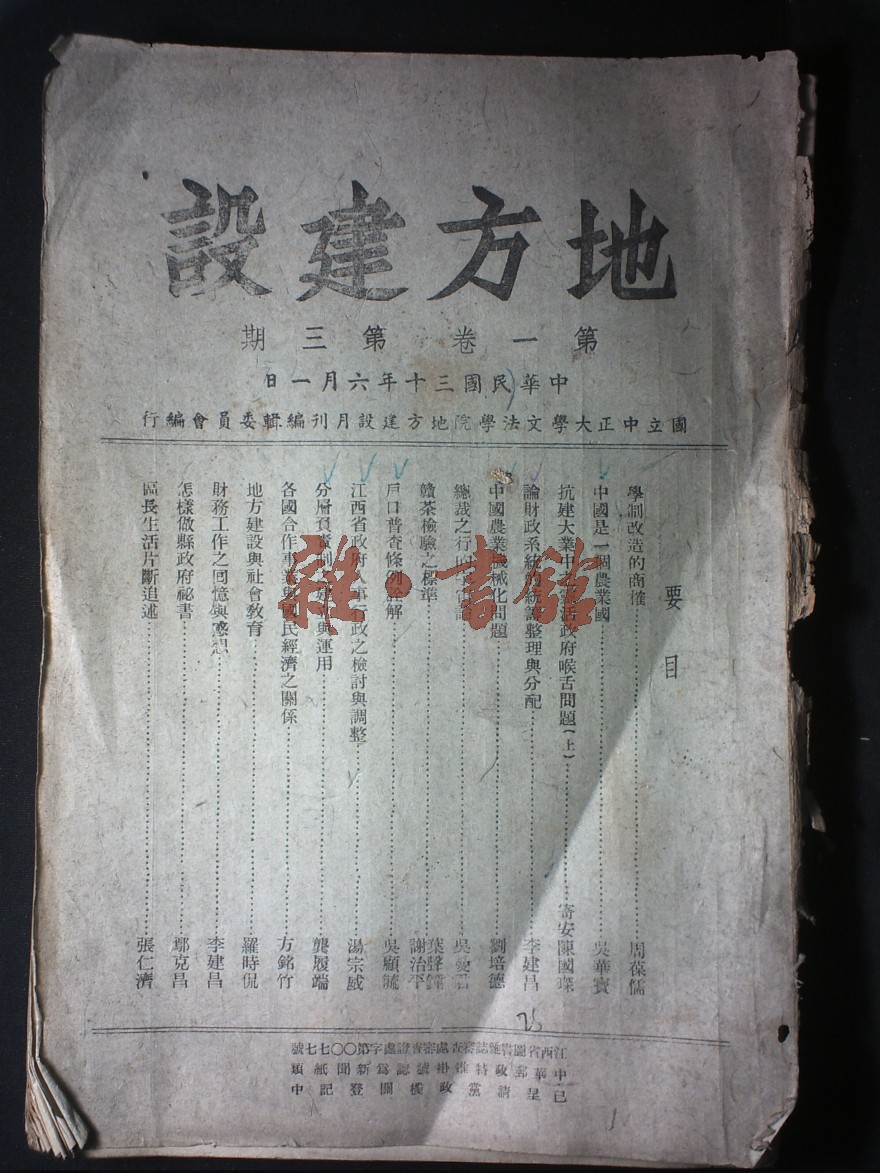 地方建設
第一卷 第三期
中華民國三十年六月一日
國立中正大學文法學院地方建設月刊編輯委員會編行
要目
學制改造的商搉 周葆儒
中國是一個農業國 吳華寶
抗建大業中靈活政府喉舌問題(上) 寄安 陳國琛
論財政系統的統籌整理與分配 李建昌
中國農業機械化問題 劉培德
總裁之行的
贛茶檢驗之標準 葉聲鐘 謝治平
戶口普查條例詮解 吳顧毓
江西省政府人事行政之檢討與調整 湯宗威
分層負責制之建立與運用 龔履端
各國合作事業與國民經濟之關係 方銘竹
地方建設與社會教育 羅時侃
財務工作之回憶與感想 李建昌
怎樣做縣政府祕書 鄢克昌
區長生活片斷追述 張仁濟
江西省圖書雜誌審查處審查證處字第〇〇七七號
中華郵政特准掛號認為新聞紙類
已呈請黨政機關登記中
雜·書館